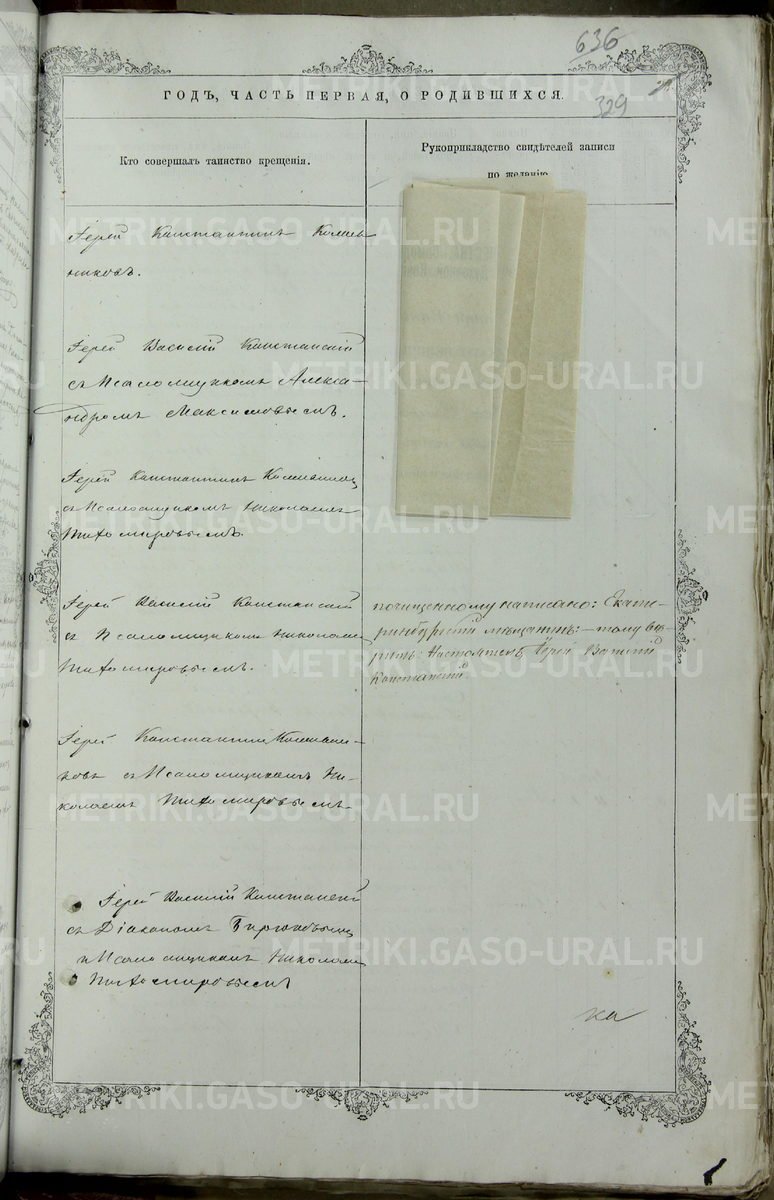 636
329
ГОДЪ, ЧАСТЬ ПЕРВАЯ, О РОДИВШИХСЯ.
Кто совершалъ таинство крещенія.
Рукоприкладство свидѣтелей записи
по желанію
Іерей Константинъ Колмен-
никовъ.
Іерей Василій Констанскій
съ Псаломщикомъ Алекса-
ндромъ Максимовымъ.
Іерей Константинъ
съ Псаломщикомъ Николаемъ
Тихомировымъ.
Іерей Василій Констанскій
съ Псаломщикомъ Николаемъ
Тихомировымъ.
почищенному написано: Екате-
ринбургскій мѣщанинъ: – тому вѣ-
рить. Іерей Василій
Констанскій
Іерей Константинъ
ковъ съ Псаломщикомъ Ни-
колаемъ Тихомировымъ.
Іерей Василій Констанскій
съ Діакономъ
и Псаломщикомъ Николаемъ
Тихомировымъ
ка
METRIKI.GASO-URAL.RU